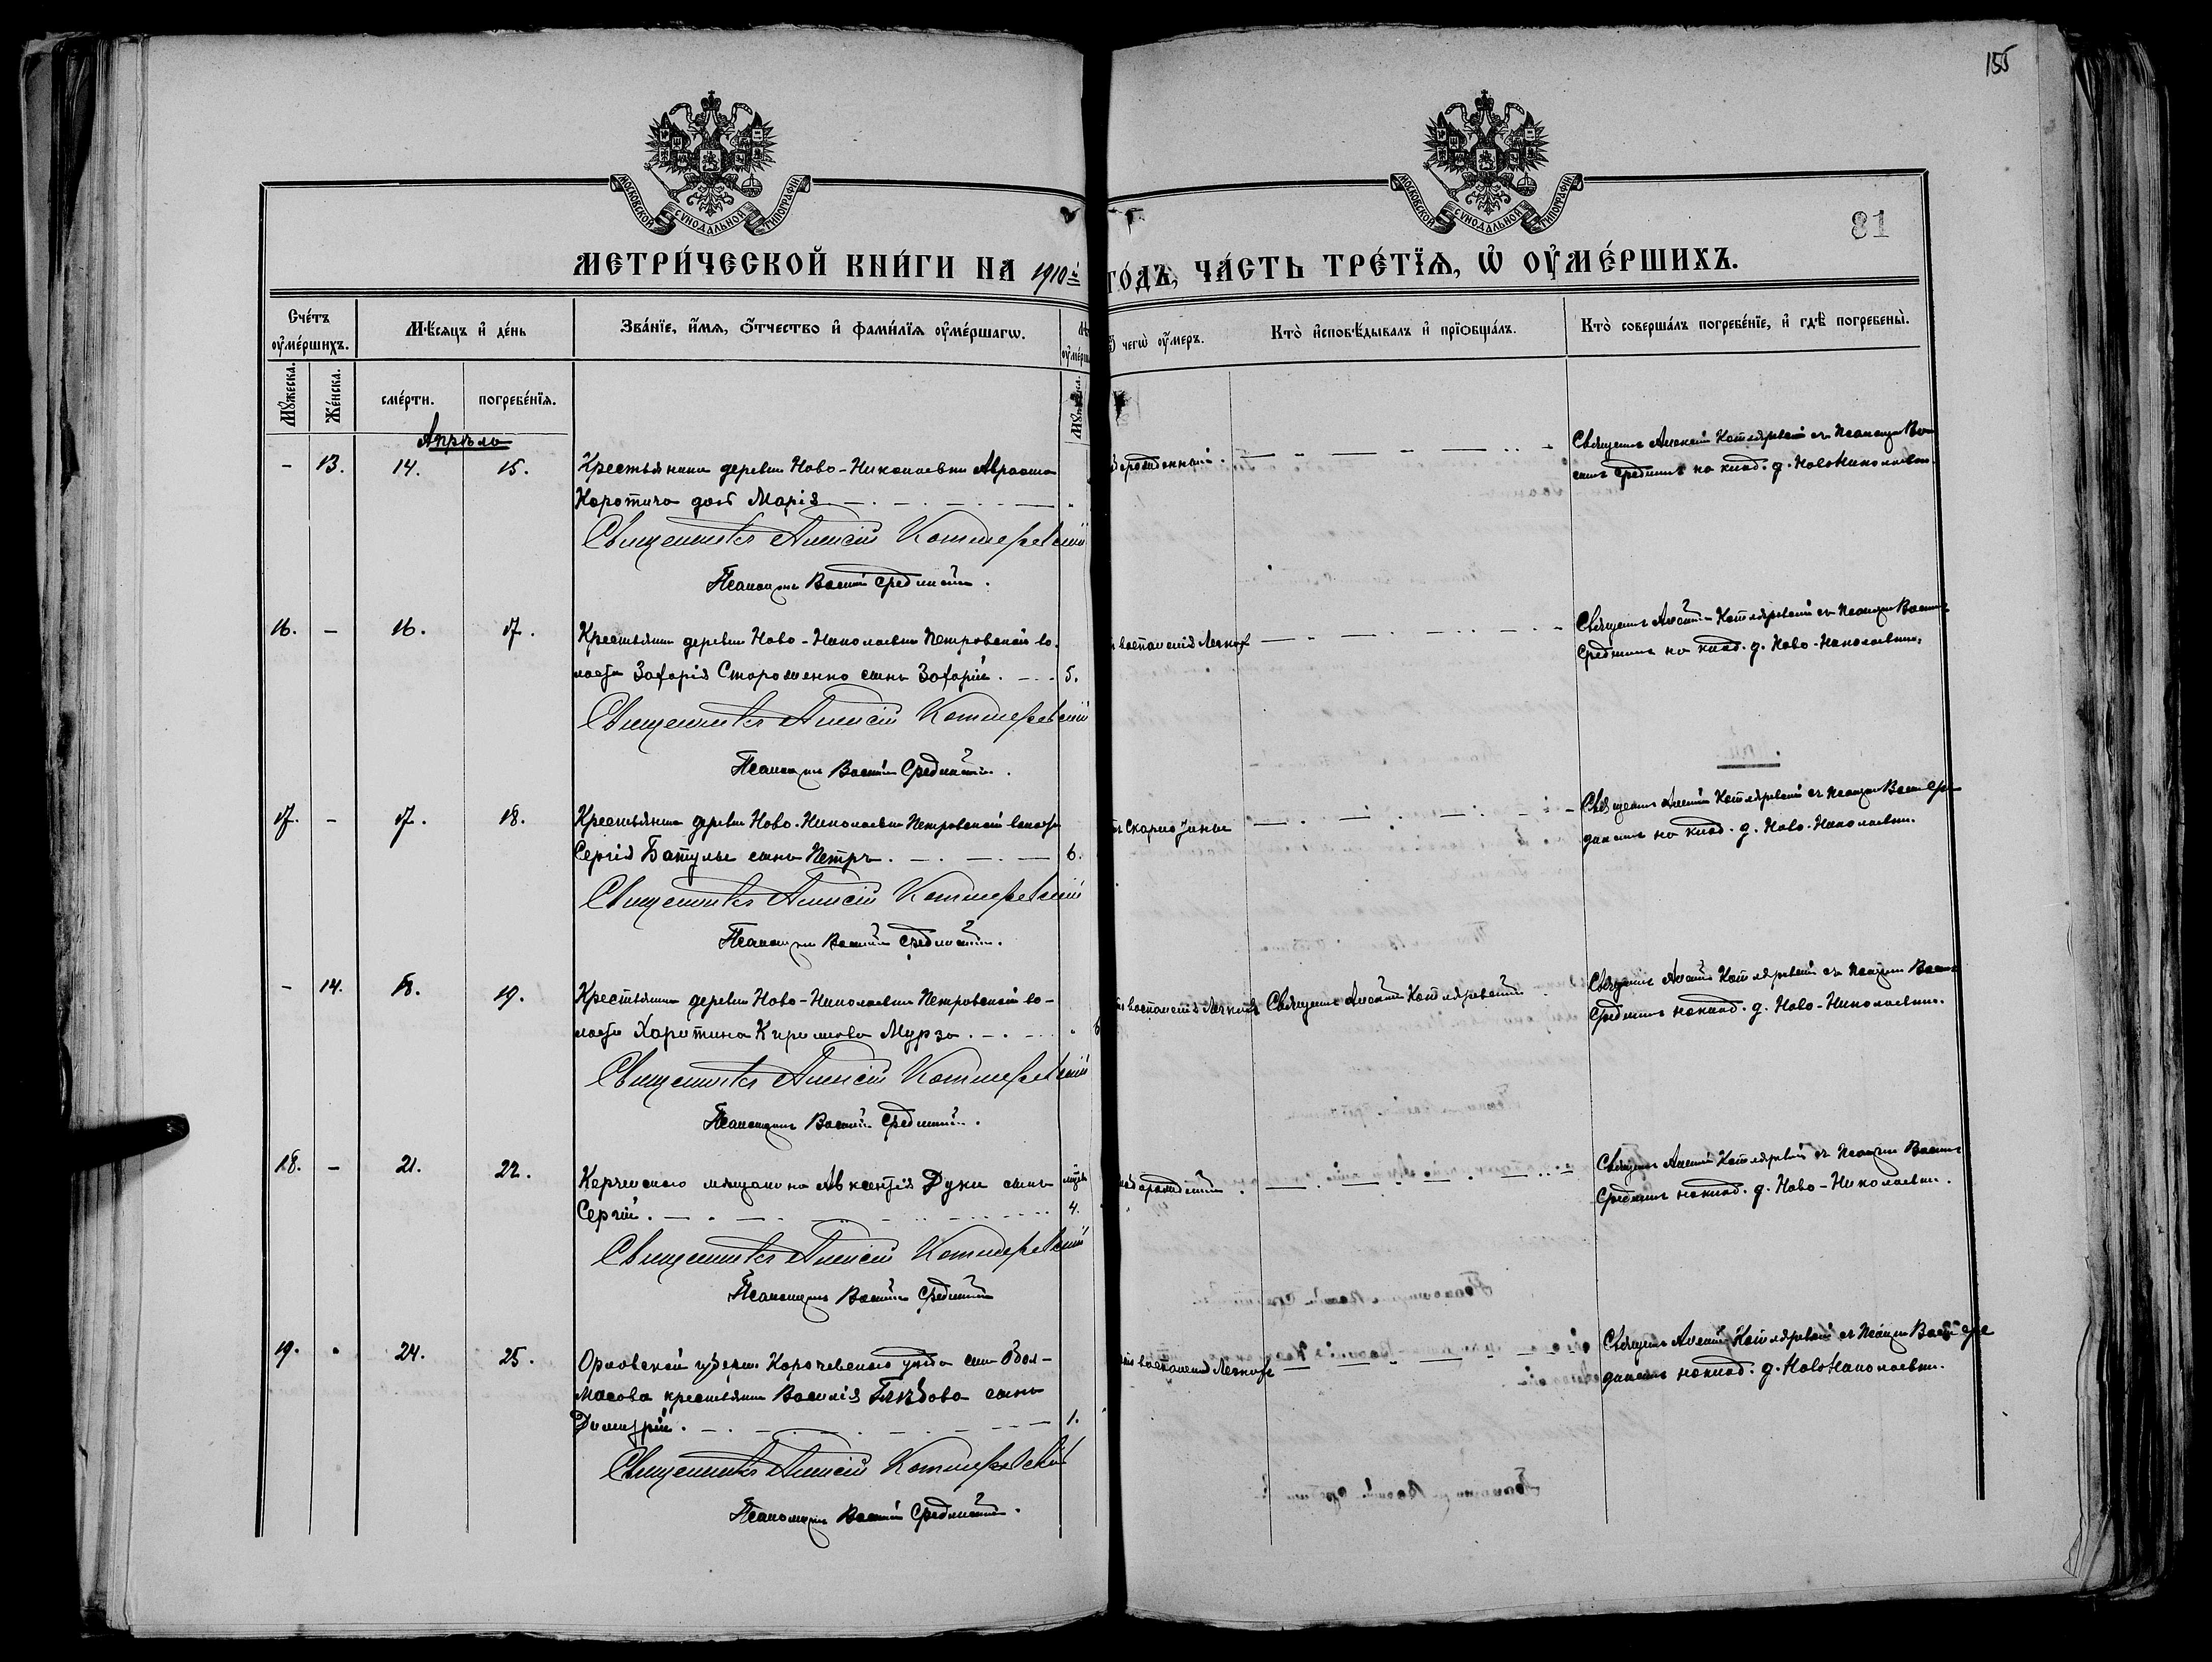 155
МОСКОВСКОЙ СѴНОДАЛЬНОЙ ТИПОГРАФІИ
МОСКОВСКОЙ СѴНОДАЛЬНОЙ ТИПОГРАФІИ
81
МЕТРИ́ЧЕСКОЙ КНИ́ГИ НА 1910й ГО́ДЪ, ЧА́СТЬ ТРЕ́ТЇѦ, Ѡ҆ ОУ҆МЕ́РШИХЪ.
Сче́тъ оу҆ме́ршихъ.
Мꙋ́жеска.
Же́нска.
Мѣ́сѧцъ и҆ де́нь
сме́рти.
погребе́нїѧ.
Зва́нїе, и҆́мѧ, ѻ҆́тчество и҆ фами́лїѧ оу҆ме́ршагѡ.
чегѡ̀ оу҆́меръ.
Кто̀ и҆сповѣ́дывалъ и҆ прїѡбща́лъ.
Кто̀ соверша́лъ погребе́нїе, и҆ гдѣ̀ погребены̀.
Апрѣль
- 13. 14. 15.
Крестьянина деревни Ново-Николаевки Авраама
Коротича дочь Марія
Священникъ Алексій Котляревскій
Псаломщикъ Василій Срединскій.
Священникъ Алексій Котляревскій съ Псаломщ. Ва-
силіемъ Срединскимъ на кладб. д. Ново-Николаевки.
16. - 16. 17.
Крестьянина деревни Ново-Николаевки Петровской во-
лости Захарія Стороженко сынъ Захарій. 5.
Священникъ Алексій Котляревскій
Псаломщикъ Василій Срединскій.
воспаленія легкихъ
Священникъ Алексій Котляревскій съ Псаломщ. Василіемъ
Срединскимъ на кладб. д. Ново-Николаевки.
17. - 17. 18.
Крестьянина деревни Ново-Николаевки Петровской волости
Сергія Батулы сынъ Петръ. 6.
Священникъ Алексій Котляревскій
Псаломщикъ Василій Срединскій.
скарлатины
Священникъ Алексій Котляревскій съ Псаломщ. Васил. Сре-
динскимъ на кладб. д. Ново-Николаевки.
- 14. 18. 19.
Крестьянина деревни Ново-Николаевки Петровской во-
лости Харитина Мурза.
Священникъ Алексій Котляревскій
Псаломщикъ Василій Срединскій.
воспаленія легкихъ
Священникъ Алексій Котляревскій
Священникъ Алексій Котляревскій съ Псаломщ. Василіемъ
Срединскимъ на кладб. д. Ново-Николаевки.
18. - 21. 22.
Керченскаго мѣщанина Авксентія Дуки сынъ
Сергій. 4.
Священникъ Алексій Котляревскій
Псаломщикъ Василій Срединскій
Священникъ Алексій Котляревскій съ Псаломщ. Василіемъ
Срединскимъ на кладб. д. Ново-Николаевки.
19. 24. 25.
Орловской губерніи Карачевскаго уѣзда
крестьянина Василія Глѣбова сынъ
Димитрій. 1.
Священникъ Алексій Котляревскій
Псаломщикъ Василій Срединскій.
воспаленія легкихъ
Священникъ Алексій Котляревскій съ Псаломщ. Васил. Сре-
динскимъ на кладб. д. Ново-Николаевки.